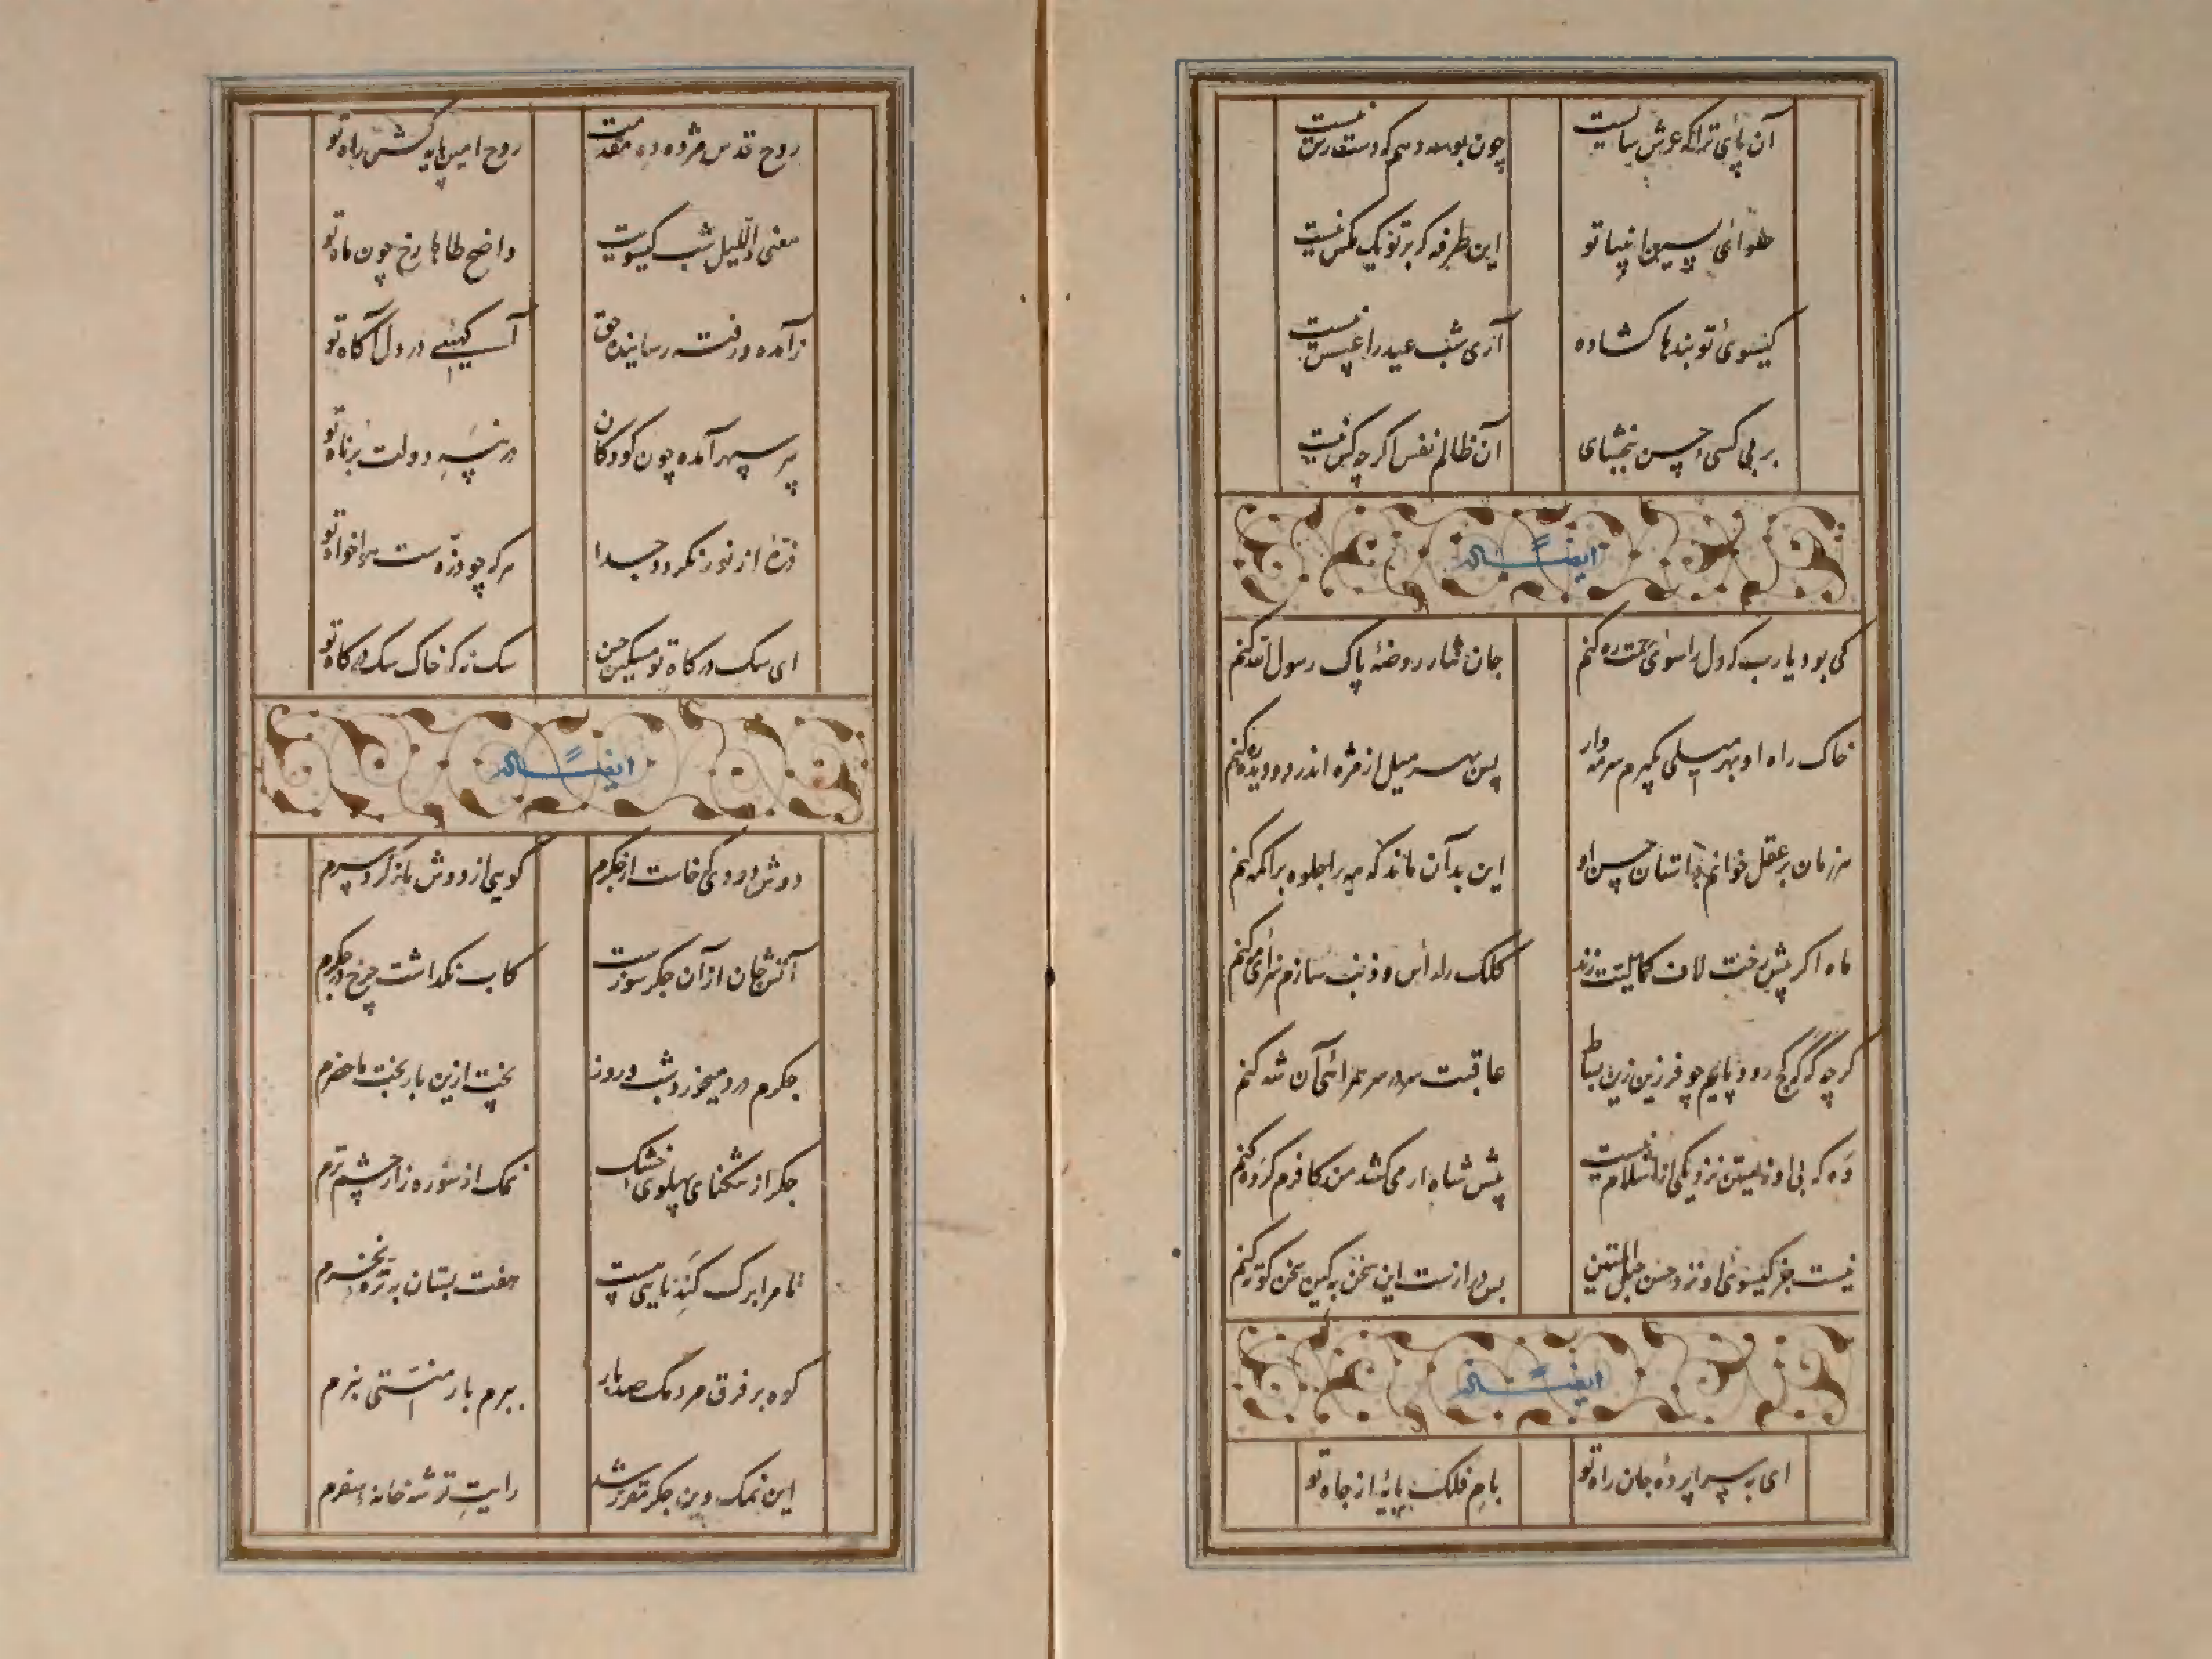 آن پائ ترا که عرش سا نیست
چون بوسه دهم که دسترس نیست
حلوائ پسین انبیا تو
این طرفه که بر تو یک مگس نیست
گیسوئ تو بندها کشاده
آری شب عید را عسس نیست
بر بی کسی حسن ببخشای
آن ظالم نفس اگر چه کس نیست
ایضاً له
کی بود یارب که دل را سوئ
جان نثار روضهٔ پاک رسول الله کنم
خاک راه او بهر میلی بگیرم سرمه وار
پس بهر میل از مژه اندر دو دیده کنم
هر زمان بر عقل خوانم داستان حسن او
این بدان ماند که مه را جلوه بر اکمه کنم
ماه اگر پیش رخت لاف کمالیت زند
کلک را راس و ذنب سازم سزای مه کنم
گرچه کژ کژ رود پایم چو فرزین زین بساط
عاقبت سر در سر سرائ آن شه کنم
وه که بی او زیستن نزدیکی از اسلام نیست
پیش شاه ار می کشد من کافرم گر وه کنم
نیست جز گیسوئ او نزد حسن حبل المتین
بس درازست این سخن به کین سخن کوته کنم
ایضاً له
ای به سراپردهٔ جان راه تو
بام فلک پایهٔ از جاه تو
روح قدس مژده ده مقدمت
روح امین هایه کش راه تو
معنی واللیل شب گیسویت
واضح طاها رخ چون ماه تو
زآمده و رفته رساینده حق
آگهیی در دل آگاه تو
پیر سپهر آمده چون کودکان
در پنه دولت برناه تو
ذره از نور نگردد جدا
هر که چو ذره ست هواخواه تو
ای سگ درگاه تو مسکین حسن
سگ نه که خاک سگ درگاه تو
ایضاً له
دوش دودی که خاست از جگرم
گویی از دوش بازکرد سرم
آتش جان از آن جگر سوزست
کاب نگذاشت چرخ در جگرم
جگرم درد میخورد شب و روز
پخت ازین بار بخت ماحضرم
جگر از تنگنای پهلوی خشک
نمک از شوره زار چشم ترم
تا مرا برگ گندنایی هست
هفت بستان به تره نخرم
کوه بر فرق مردمک صد بار
ببرم بار منتی نبرم
این نمک وین جگر مقرر شد
راتب توشه خانهٔ سفرم